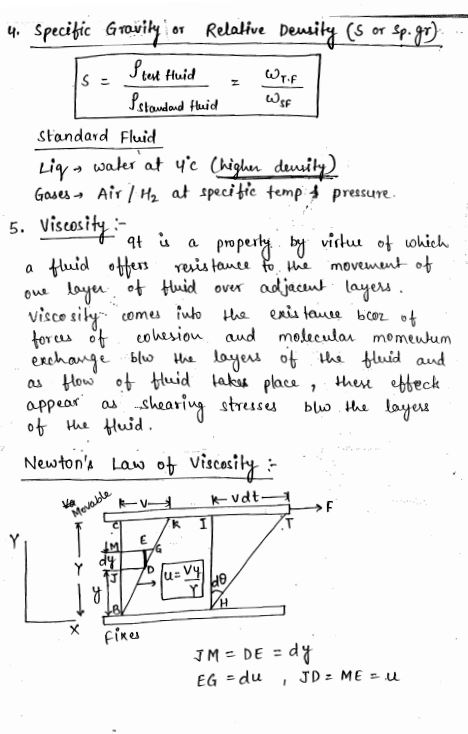 4. Specific Gravity or Relative Density (S or Sp.gr)
S = ρtest fluid / ρStandard fluid = ωT.F / ωSF
Standard Fluid
Liq → water at 4°c (higher density)
Gases → Air / H₂ at specific temp & pressure.
5. Viscosity :-
It is a property by virtue of which
a fluid offers resistance to the movement of
one layer of fluid over adjacent layers.
Viscosity comes into the existance bcoz of
forces of cohesion and molecular momentum
exchange b/w the layers of the fluid and
as flow of fluid takes place, these effeck
appear as shearing stresses b/w the layers
of the fluid.
Newton's Law of Viscosity :-
Movable
V
Vdt
F
C
K
I
T
Y
Y
M
E
G
dy
J
D
u = Vy/Y
dθ
y
B
H
X
Fixes
JM = DE = dy
EG = du , JD = ME = u